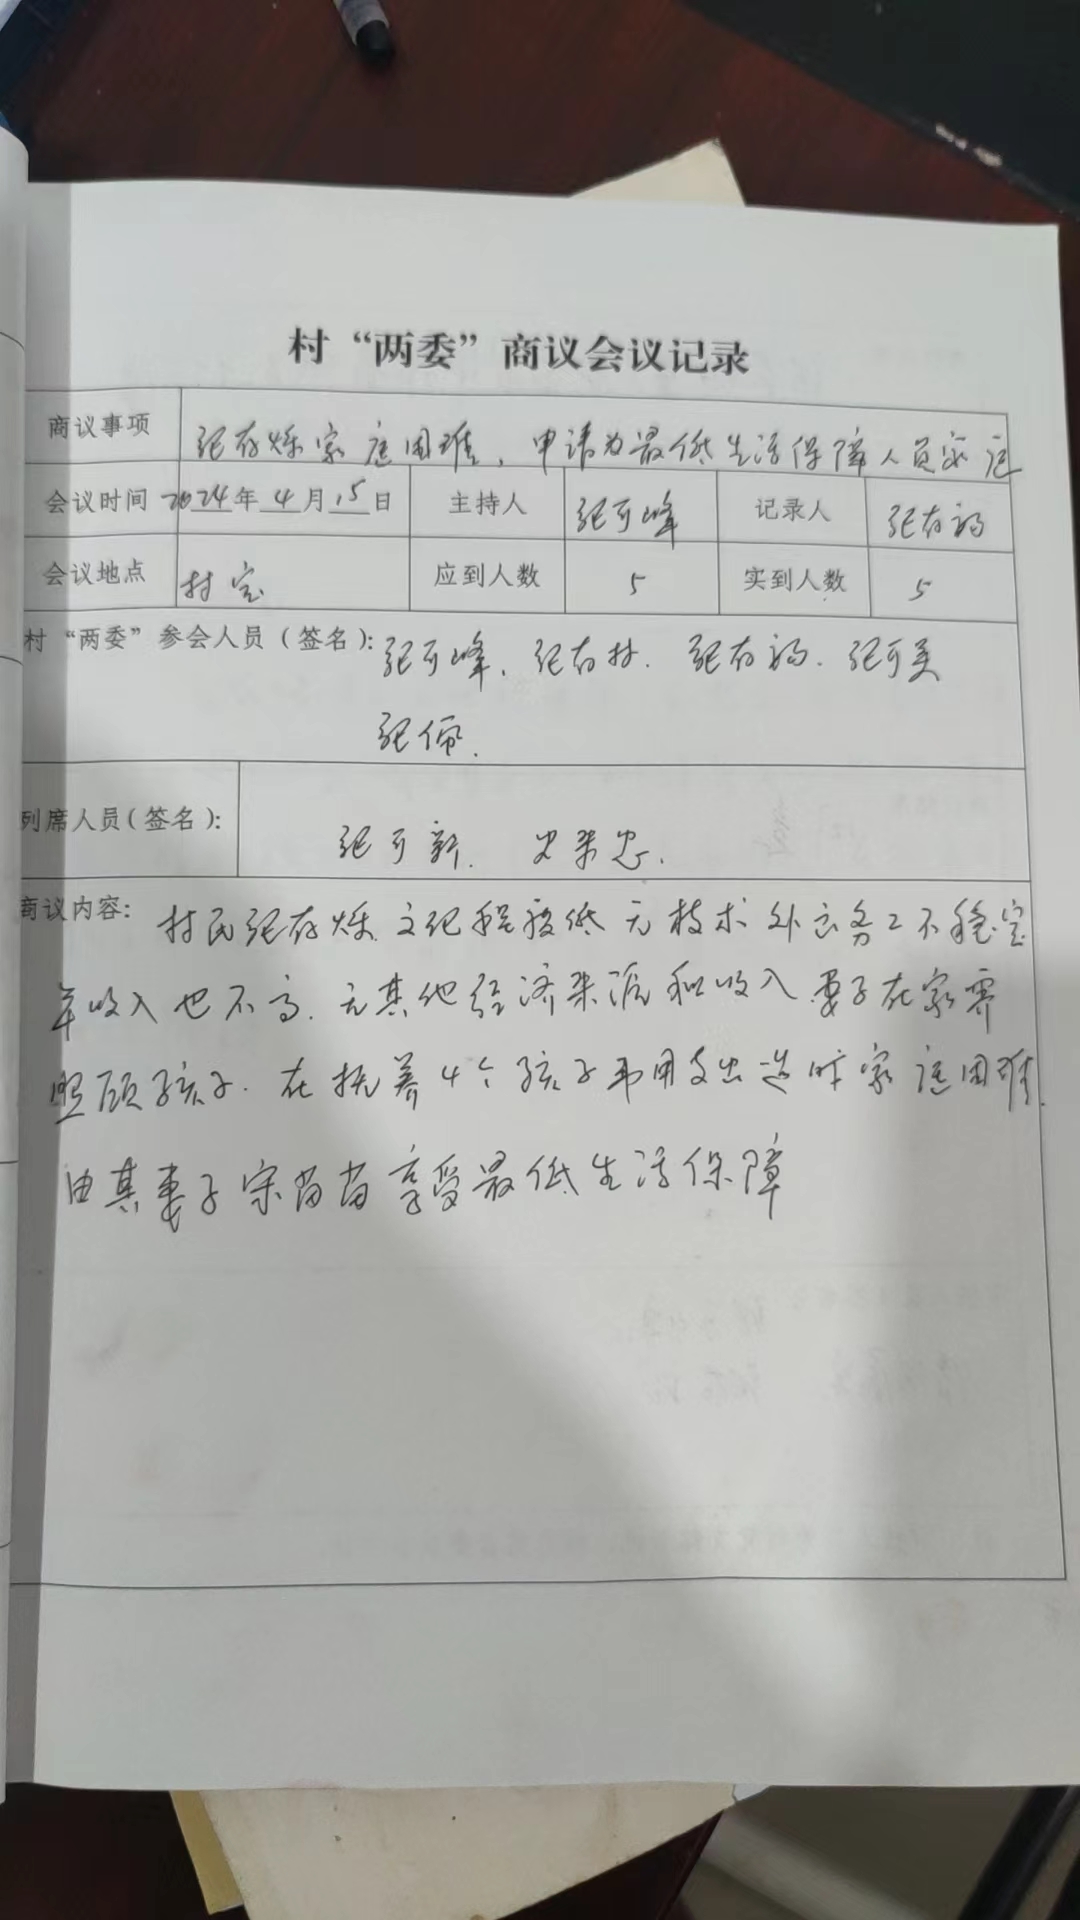 村“两委”商议会议记录
商议事项 张存烁家庭困难，申请为最低生活保障人员家庭
会议时间 2024年4月15日 主持人 张可峰 记录人 张存
会议地点 村室 应到人数 5 实到人数 5
村“两委”参会人员（签名）：张可峰、张存林、张存 、张可美
张佩.
列席人员（签名）： 张可新. 忠.
商议内容： 村民张存烁 文化程度低 无技术 外出务工不稳定
年收入也不高. 无其他经济来源和收入 妻子在家需
照顾孩子. 在抚养4个孩子 用支出造 家庭困难.
由其妻子宋苗苗享受最低生活保障